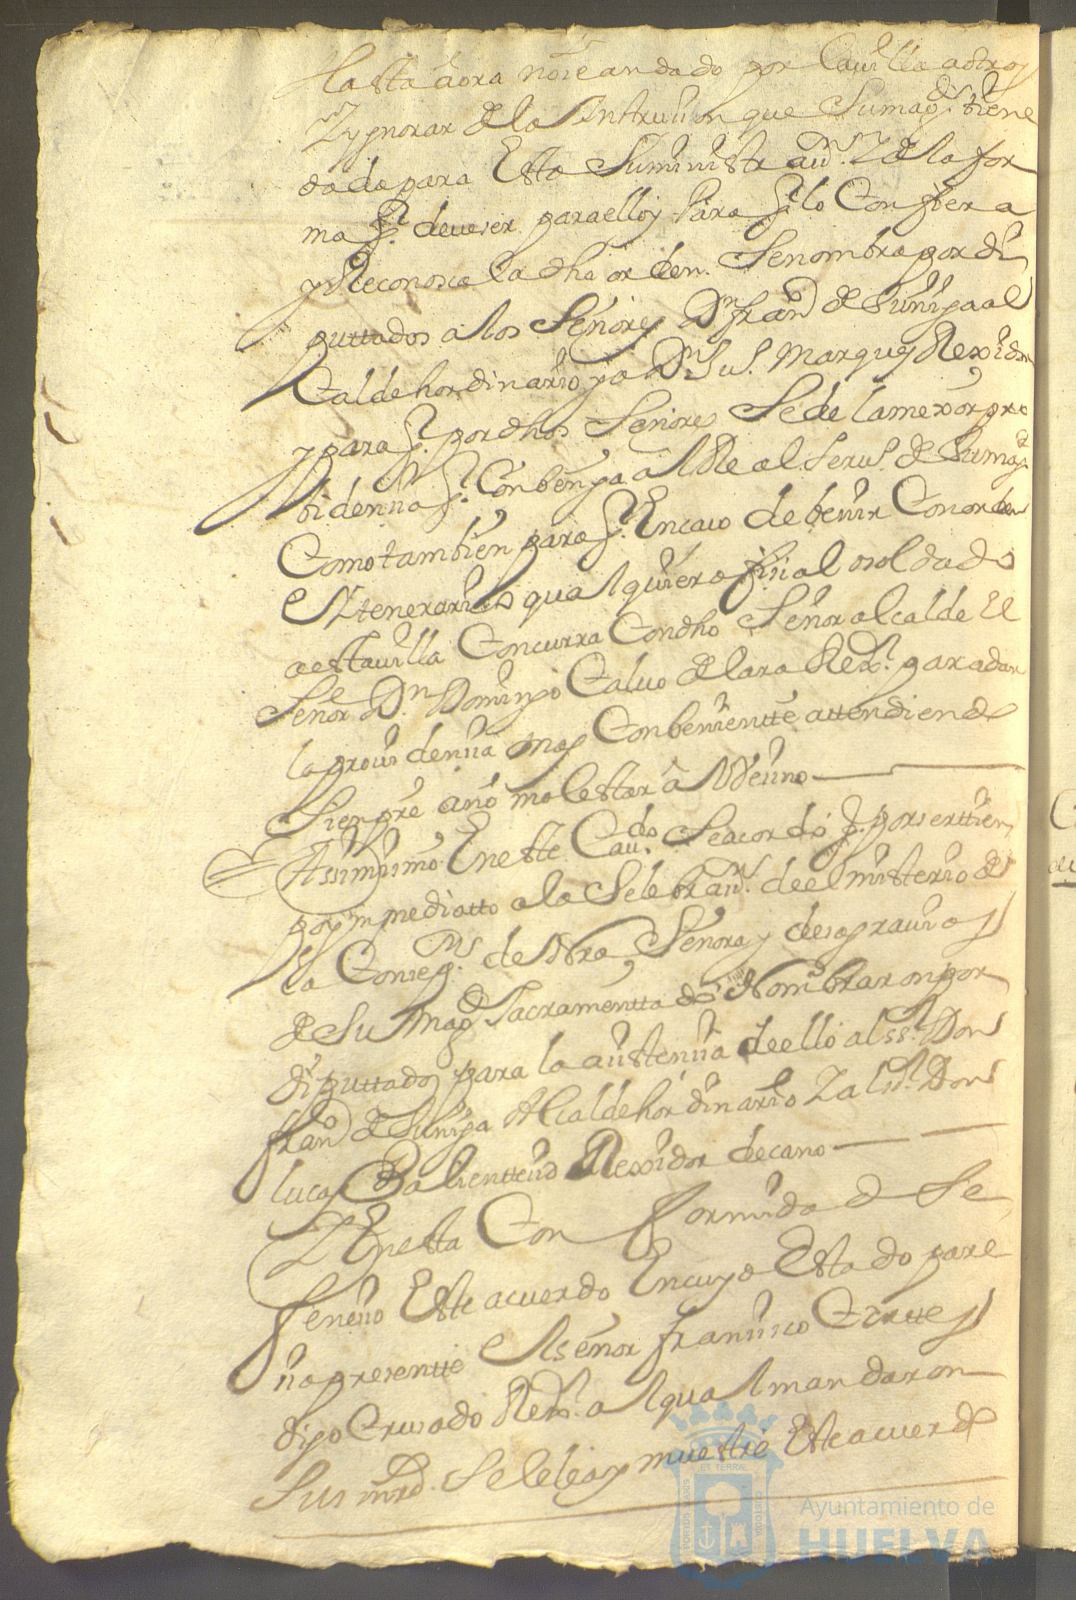 hasta aora no se an dado por la villa a otros
Zygnorar de la Yntruiion que Sumagd. tiene
dada para Esta Suministrazn. Z de la for
ma q. deve ser para ello y Para q. lo Confiera
y Reconosca la dha orden. Se nombra por di
puttados a los Señores Dn. fran.co de Suñiga al
Calde hordinario y a Dn. Ju. Marques Rexidor
y para q. por dhos Señores Se de la mexor pro
bidenzia q. Conbenga al Real Serv.o de Sumagd.
Como tambien para q. En caso de benir Con orden
e Ytenerario qualquiera ofizial o soldado
a esta villa Concurra Con dho Señor alcalde El
Señor Dn. Domingo Calvo de Lara Rexr. para dar
la providenzia mas Conbenientte attendiendo
Sienpre a no molestar al Vezino
Assimismo En este Cavdo. Se acordó q. por ser ttien
po ynmediatto a la Selebrazn. de el misterio de
la Conzepn. de Nra Señora y desagravios
de Su Magd. Sacramenttado Nombraron por
diputtados para la asistenzia de ello al ssr. Don
fran.co de Suñiga Alcalde hordinario Z al sr. Don
Lucas Balienttin Rexidor decano
Z En esta Conformidad Se
fenezio Este acuerdo En cuyo Estado pare
zio presentte el señor franzisco Corttes
digo Crusado Rexr. al qual mandaron
Sus mrds. Se le lea y muestre Este acuerdo
ET TERRAE
PORTUS MARIS
CUSTODIA
Ayuntamiento de
HUELVA